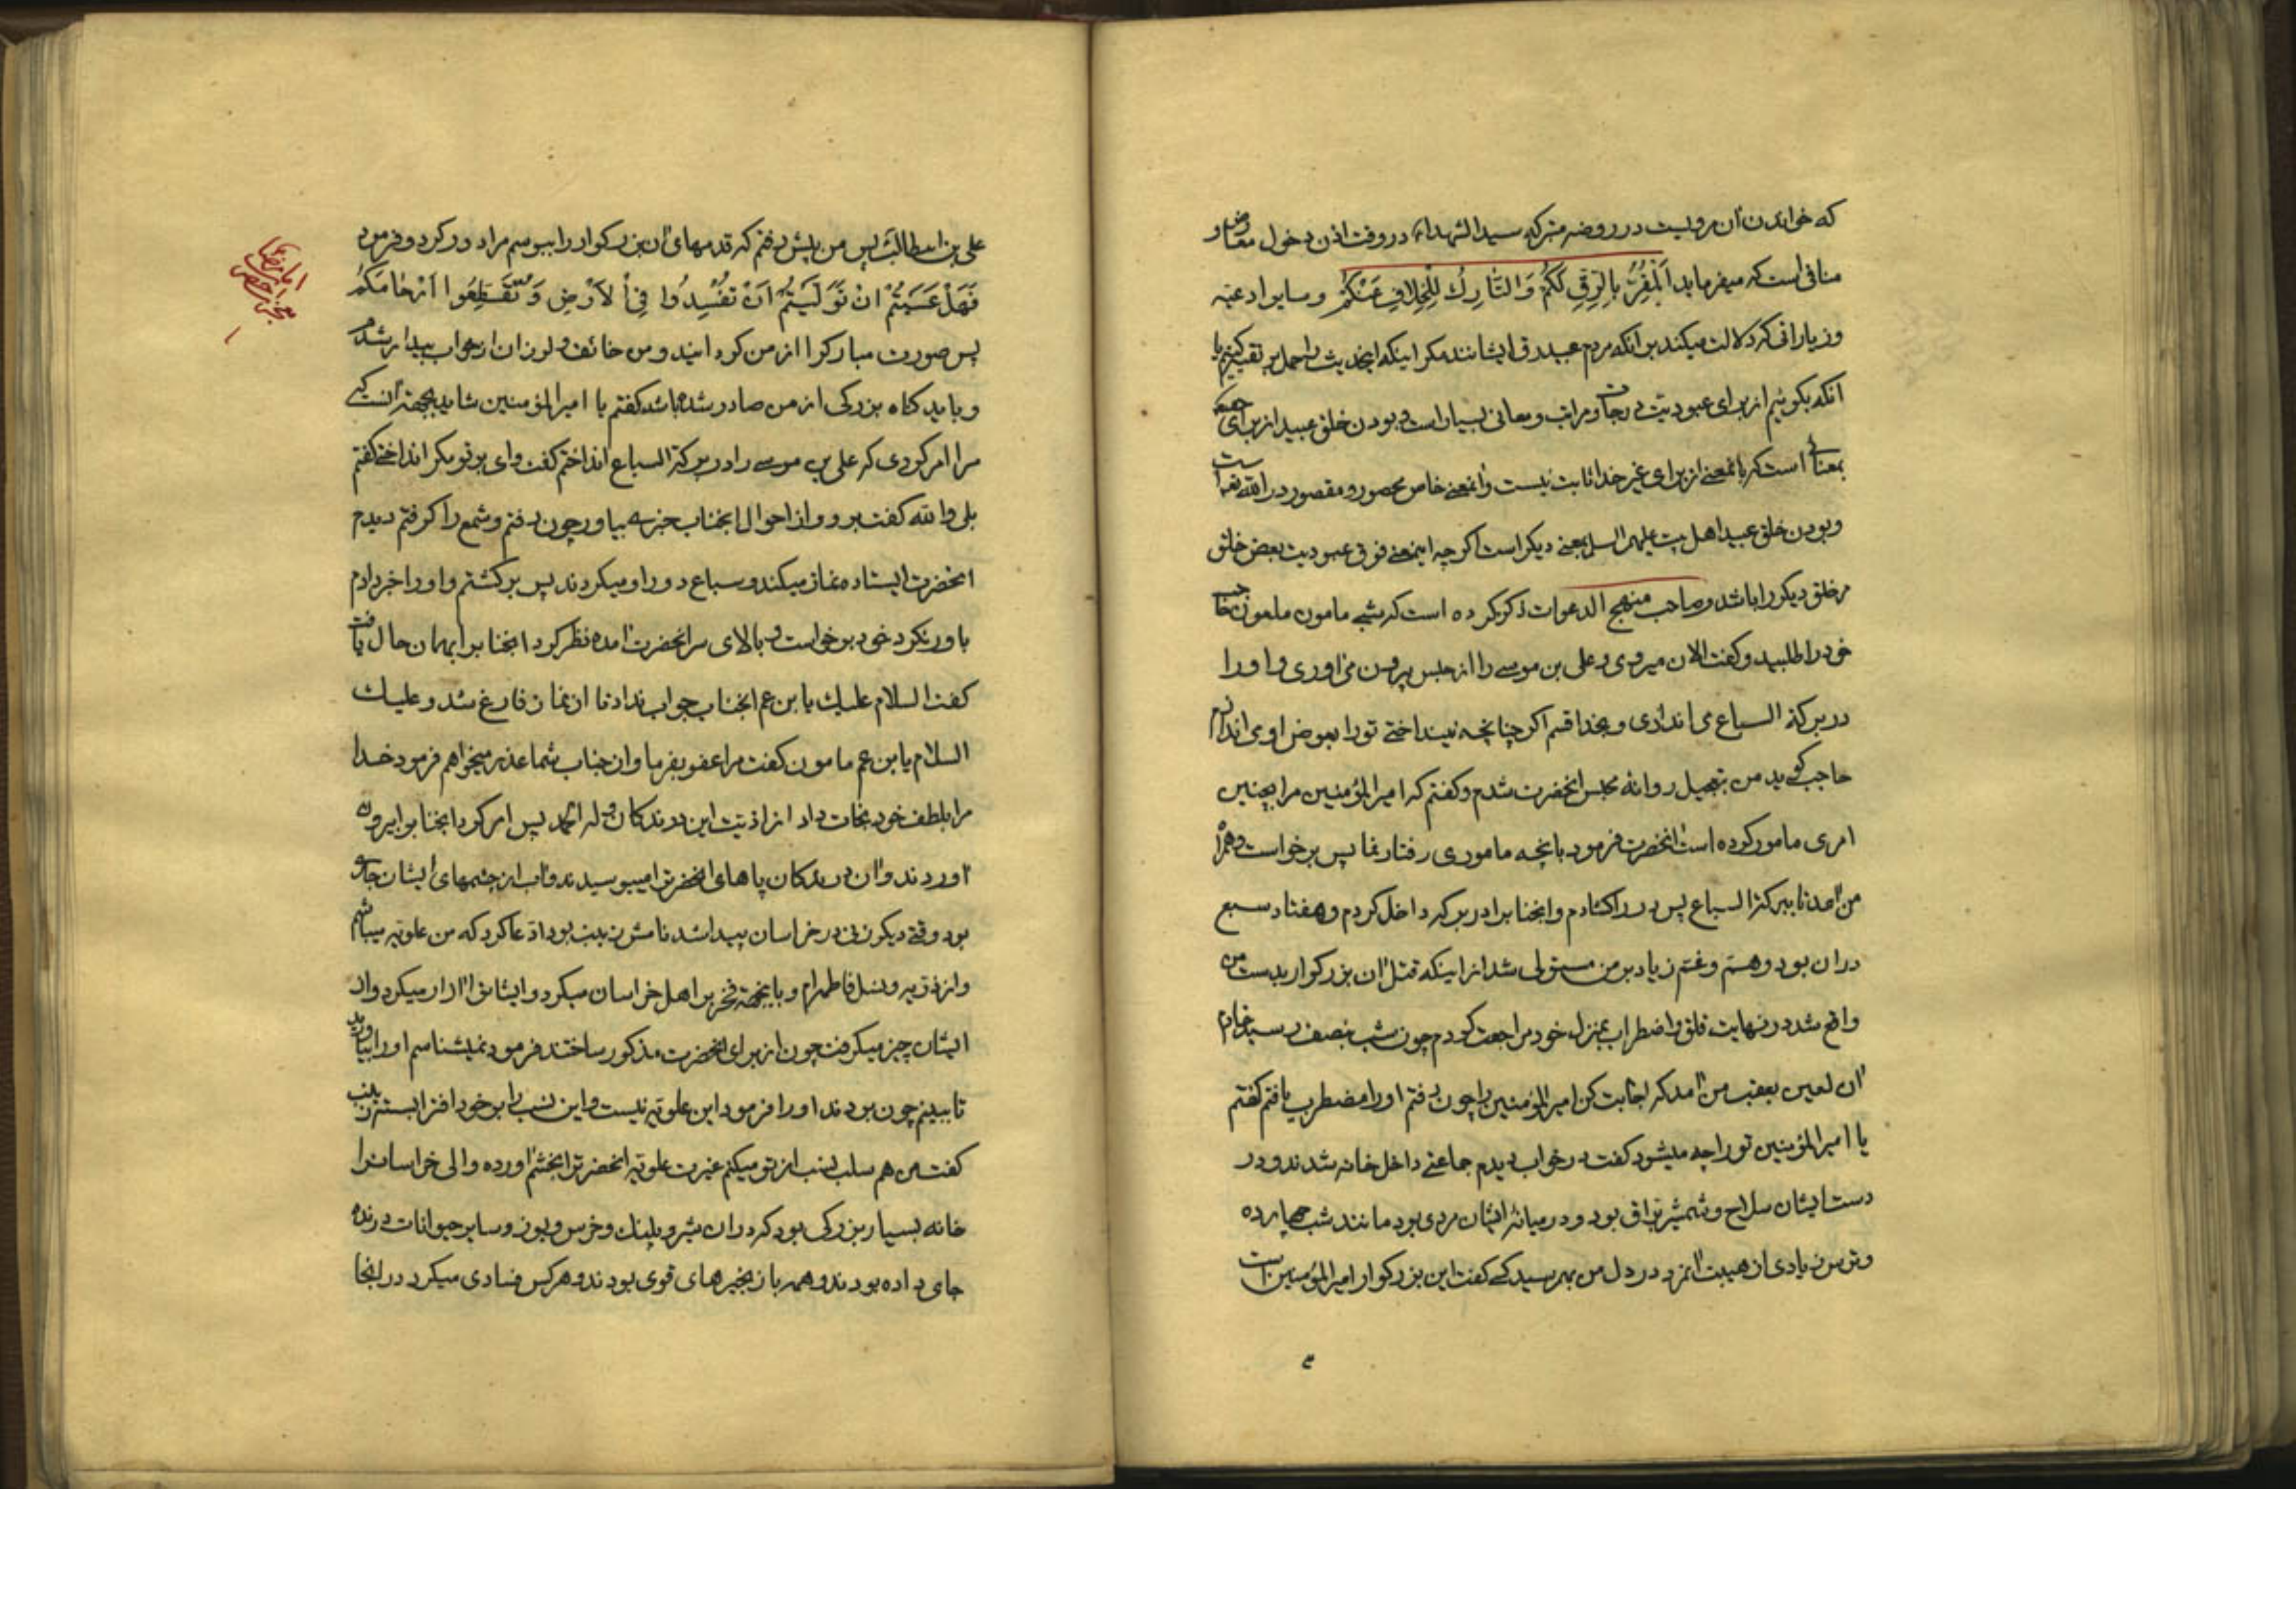 که خواندن آن مرویست در روضه متبرکه سیدالشهداء در وقت اذن دخول معارض و
منافی است که میفرماید اَلْمُقِرُّ بِالرِّقِ لَکُمْ وَ التّٰارِكُ لِلْخِلافِ عَنْکُمْ وسایر ادعیه
وزیاراتی که دلالت میکند بر آنکه مردم عبید رق ایشانند مکر اینکه اینحدیث را حمل بر تقیه کنیم یا
آنکه بکوئیم از برای عبودیت درجات و مراتب و معانی بسیار است و بودن خلق عبید از برای
بمعنائی است که بانمعنے از برای غیر خدا ثابت نیست وانمعنے خاص محصور و مقصور در الله تعالی است
وبودن خلق عبید اهل بیت علیهم السلم بمعنے دیکر است اکر چه اینمعنے فوق عبودیت بعض خلق
مر خلق دیکر را باشد و صاحب منهج الدعوات ذکر کرده است که شبے مامون ملعون حاجب
خود را طلبید و کفت الان میروی و علی بن موسے را از حبس بیرون می اوری و او را
در برکة السباع می اندازی و بخدا قسم اکر چنانچه نینداختے تو را بعوض او می اندازم
حاجب کوید من بتعجیل روانه محبس انحضرت شدم و کفتم که امیر المؤمنین مرا بچنین
امری مامور کرده است انحضرت فرمود بانچه ماموری رفتار نما پس برخواست و همراه
من آمد تا ببرکة السباع پس در را کشادم و انجنابرا در برکه داخل کردم و هفتاد سبع
دران بود و همّ و غم زیاد بر من مستولی شد از اینکه قتل آن بزرکوار بدست من
واقع شد در نهایت قلق و اضطراب بمنزل خود مراجعت کردم چون شب بنصف رسید خادم
آن لعین بعقب من آمد که اجابت کن امیر المؤمنین را چون رفتم او را مضطرب یافتم کفتم
یا امیر المؤمنین تو را چه میشود کفت در خواب دیدم جماعتے داخل خانه شدند و در
دست ایشان سلاح و شمشیر براق بود و در میانه ایشان مردی بود مانند شب چهارده
وترس زیادی از هیبت آنمرد در دل من بهم رسید کسے کفت این بزرکوار امیر المؤمنین است
علی بن ابیطالب پس من پیش رفتم که قدمهای آن بزرکوار را ببوسم مرا دور کرد و فرمود
فَهَلْ عَسَیْتُمْ اِنْ تَوَلَّیْتُمْ اَنْ تُفْسِدُوا فِی الْاَرْضِ وَ تُقَطِّعُوا اَرْحٰامَکُمْ
پس صورت مبارکرا از من کردانید و من خائف و لرزان از خواب بیدار شدم
وباید کناه بزرکی از من صادر شده باشد کفتم یا امیر المؤمنین شاید بجهة آنست که
مرا امر کردی که علی بن موسے را در برکة السباع انداختم کفت وای بر تو مکر انداختے کفتم
بلی والله کفت برو و از احوال انجناب خبری بیاور چون رفتم و شمع را کرفتم دیدم
انحضرت ایستاده نماز میکند و سباع دور او میکردند پس برکشتم و او را خبر دادم
باور نکرد خود برخواست و بالای سر انحضرت آمده نظر کرد انجنابرا بهمان حال یافت
کفت السلام علیك یا بن عم انجناب جواب نداد تا از نماز فارغ شد و علیك
السلام یا بن عم مامون کفت مرا عفو بفرما و ان جناب شما عذر میخواهم فرمود خدا
مرا بلطف خود نجات داد از اذیت این درندکان وله الحمد پس امر کرد انجنابرا بیرون
آوردند و آن درندکان پاهای انحضرترا میبوسیدند و آب از چشمهای ایشان جاری
بود وقتے دیکر زنی در خراسان پیدا شد نامش زینب بود ادّعا کرد که من علویّه میباشم
واز ذریّه و نسل فاطمه ام و باینجهة فخر بر اهل خراسان میکرد و ایشانرا آزار میکرد و از
ایشان چیز میکرفت چون از برای انحضرت مذکور ساختند فرمود نمیشناسم او را بیاورید
تا ببینم چون بردند او را فرمود این علویّه نیست و این نسب را بر خود افترا بسته زینب
کفت من هم سلب نسب از تو میکنم غیرت علویّه انحضرترا بخشم آورده والی خراسانرا
خانه بسیار بزرکی بود که دران شیر و پلنك و خرس و یوز و سایر حیوانات درنده
جای داده بودند و همه با زنجیرهای قوی بودند و هر کس فسادی میکرد در انجا